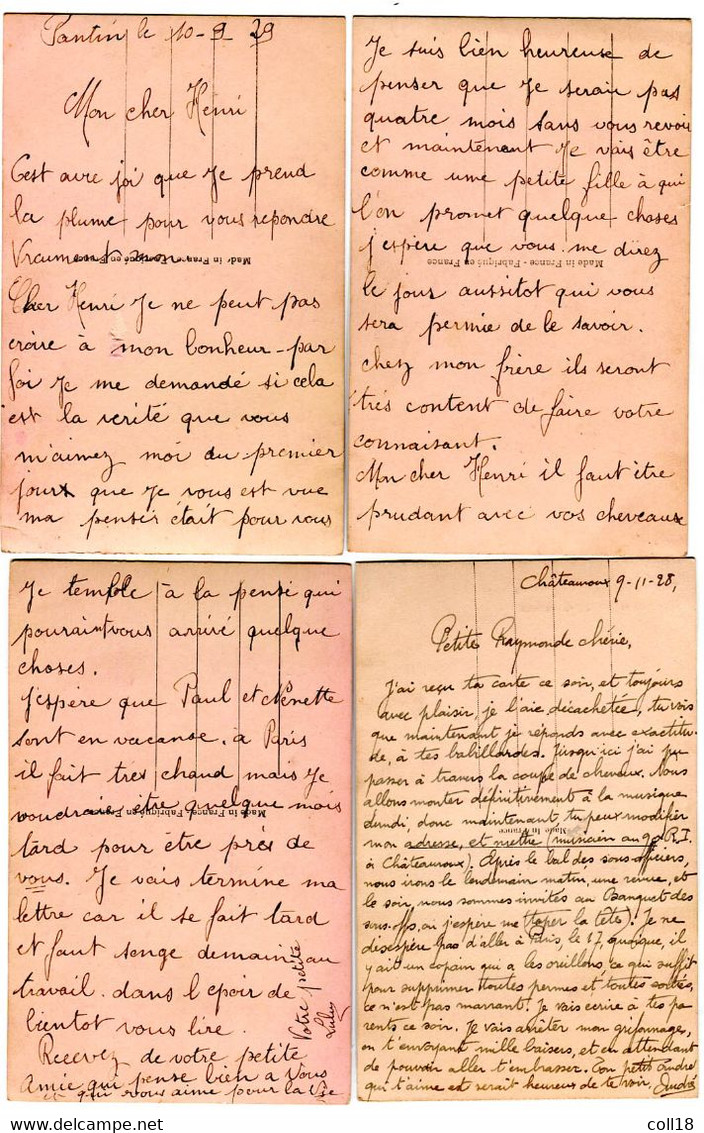 Pantin le 10-9 29
Mon cher Henri
C'est avec joi que Je prend
la plume pour vous repondre
Vraiment
Made in France - Fabriqué en France
Cher Henri Je ne peut pas
croire à mon bonheur - par
foi Je me demandé si cela
est la verité que vous
m'aimez moi du premier
jour que Je vous est vue
ma pensés était pour vous
Je suis bien heureuse de
penser que Je serai pas
quatre mois sans vous revoir
et maintenant Je vais être
comme une petite fille à qui
l'on promet quelque choses
j'espère que vous me direz
Made in France - Fabriqué en France
le jour aussitot qui vous
sera permie de le savoir.
chez mon frère ils seront
très content de faire votre
connaisant.
Mon cher Henri il faut être
prudant avec vos cheveaux
Je temble à la pensé qui
pouraint vous arrivé quelque
choses.
J'espère que Paul et Nenette
sont en vacanse. à Paris
il fait tres chaud mais Je
voudrais être quelque mois
Made in France - Fabriqué en France
tard pour être près de
vous. Je vais termine ma
lettre car il se fait tard
et faut songe demain au
travail. dans l'epoir de
bientot vous lire.
Recevez de votre petite
Amie qui pense bien a Vous
et qui vous aime pour la Vie
Votre petite
Châteauroux 9-11-28,
Petite Raymonde chérie,
J'ai reçu ta carte ce soir, et toujours
avec plaisir, je l'aie décachetée, tu vois
que maintenant je réponds avec exactitu-
de, à tes babillardes. Jusqu'ici j'ai pu
passer à travers la coupe de cheveux. Nous
allons monter définitivement à la musique
lundi, donc maintenant, tu peux modifier
Made in France
mon adresse, et mettre (musicien au 90e R.I.
à Châteauroux). Après le bal des sous-officiers,
nous irons le lendemain matin, une revue, et
le soir, nous sommes invités au Banquet des
sous-offs, où j'espère me (taper la tête). Je ne
désespère pas d'aller à Paris, le 17, quoique, il
y ait un copain qui a les oreillons, ce qui suffit
pour supprimer toutes permes et toutes sorties,
ce n'est pas marrant. Je vais écrire à tes pa-
rents ce soir. Je vais arrêter mon grifonnage,
en t'envoyant mille baisers, et en attendant
de pouvoir aller t'embrasser. Ton petit André
qui t'aime et serait heureux de te voir, André
coll18